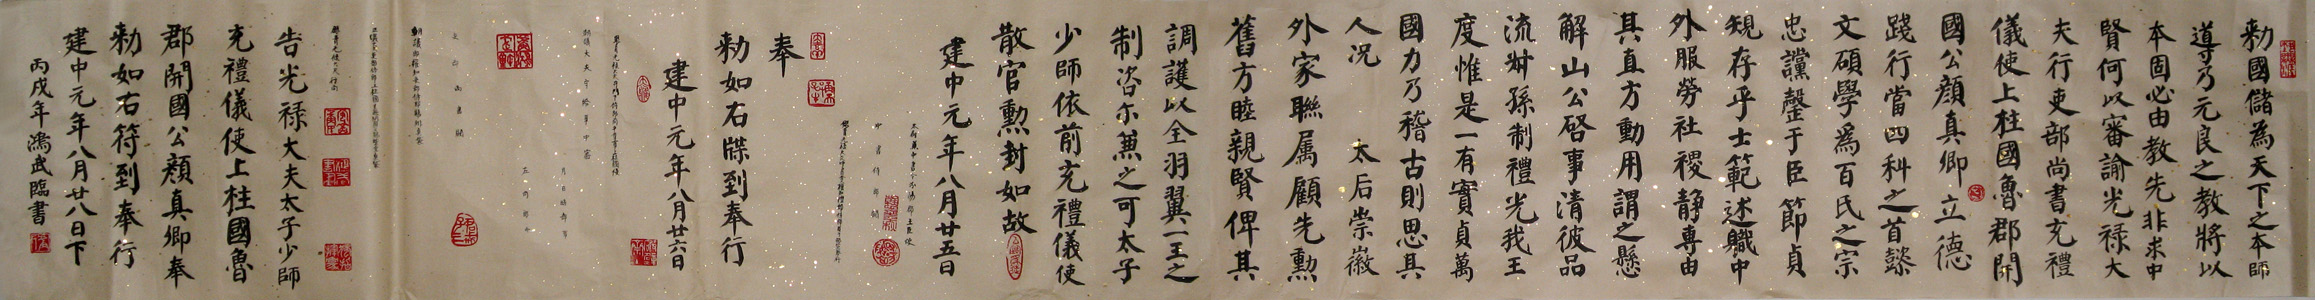 勅國儲為天下之本師
導乃元良之教將以
本固必由教先非求中
賢何以審諭光禄大
夫行吏部尚書充禮
儀使上柱國魯郡開
國公顔真卿立德
踐行當四科之首懿
文碩學為百氏之宗
忠讜罄于臣節貞
規存乎士範述職中
外服勞社稷静專由
其直方動用謂之懸
解山公啓事清彼品
流叔孫制禮光我王
度惟是一有實貞萬
國力乃稽古則思其
人况 太后崇徽
外家聯属顧先勲
舊方睦親賢俾其
調護以全羽翼一王之
制咨尔兼之可太子
少師依前充禮儀使
散官勲封如故
建中元年八月廿五日
奉
勅如右牒到奉行
建中元年八月廿六日
告光禄大夫太子少師
充禮儀使上柱國魯
郡開國公顔真卿奉
勅如右符到奉行
建中元年八月廿八日下
丙戌年鴻武臨書